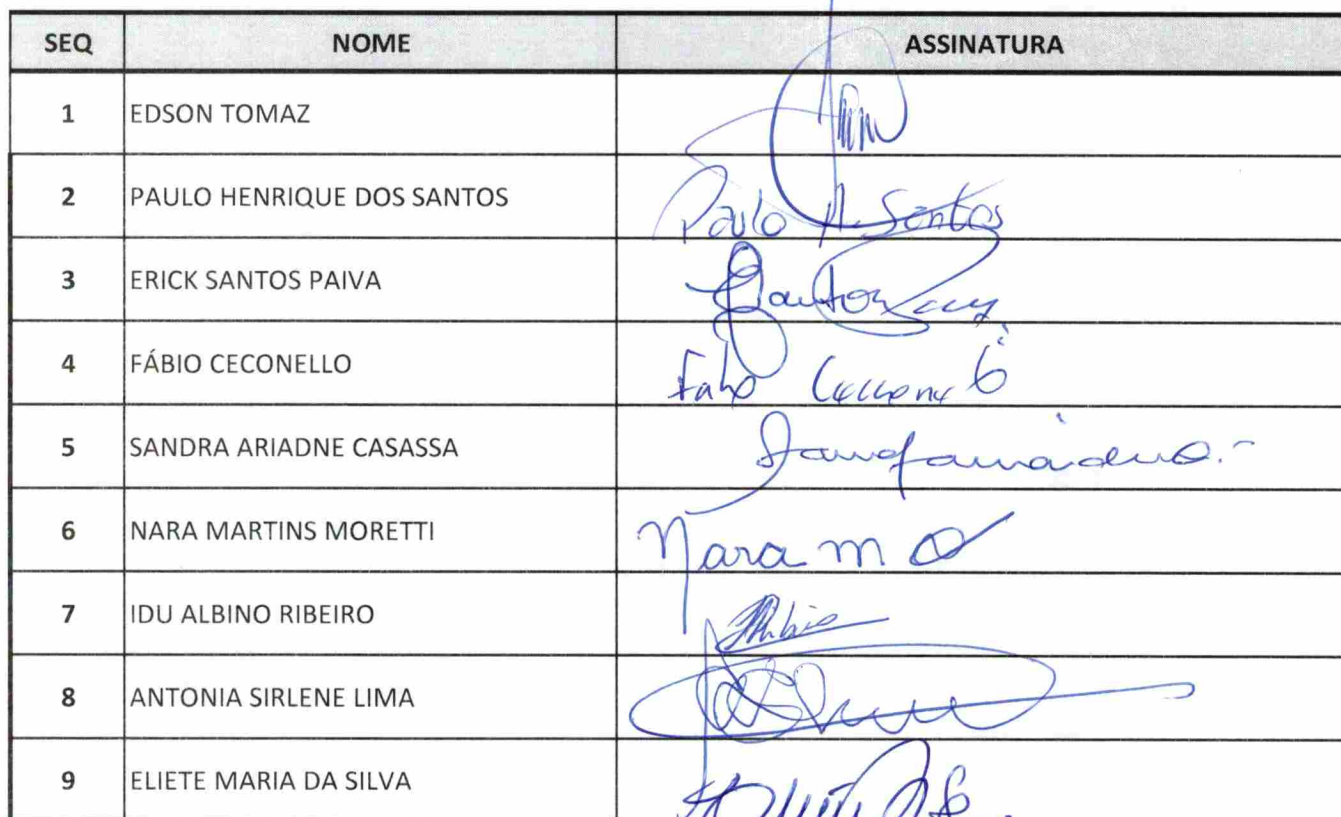 SEQ NOME ASSINATURA
1 EDSON TOMAZ
2 PAULO HENRIQUE DOS SANTOS Paulo H. Santos
3 ERICK SANTOS PAIVA
4 FÁBIO CECONELLO
5 SANDRA ARIADNE CASASSA
6 NARA MARTINS MORETTI Nara m
7 IDU ALBINO RIBEIRO
8 ANTONIA SIRLENE LIMA
9 ELIETE MARIA DA SILVA